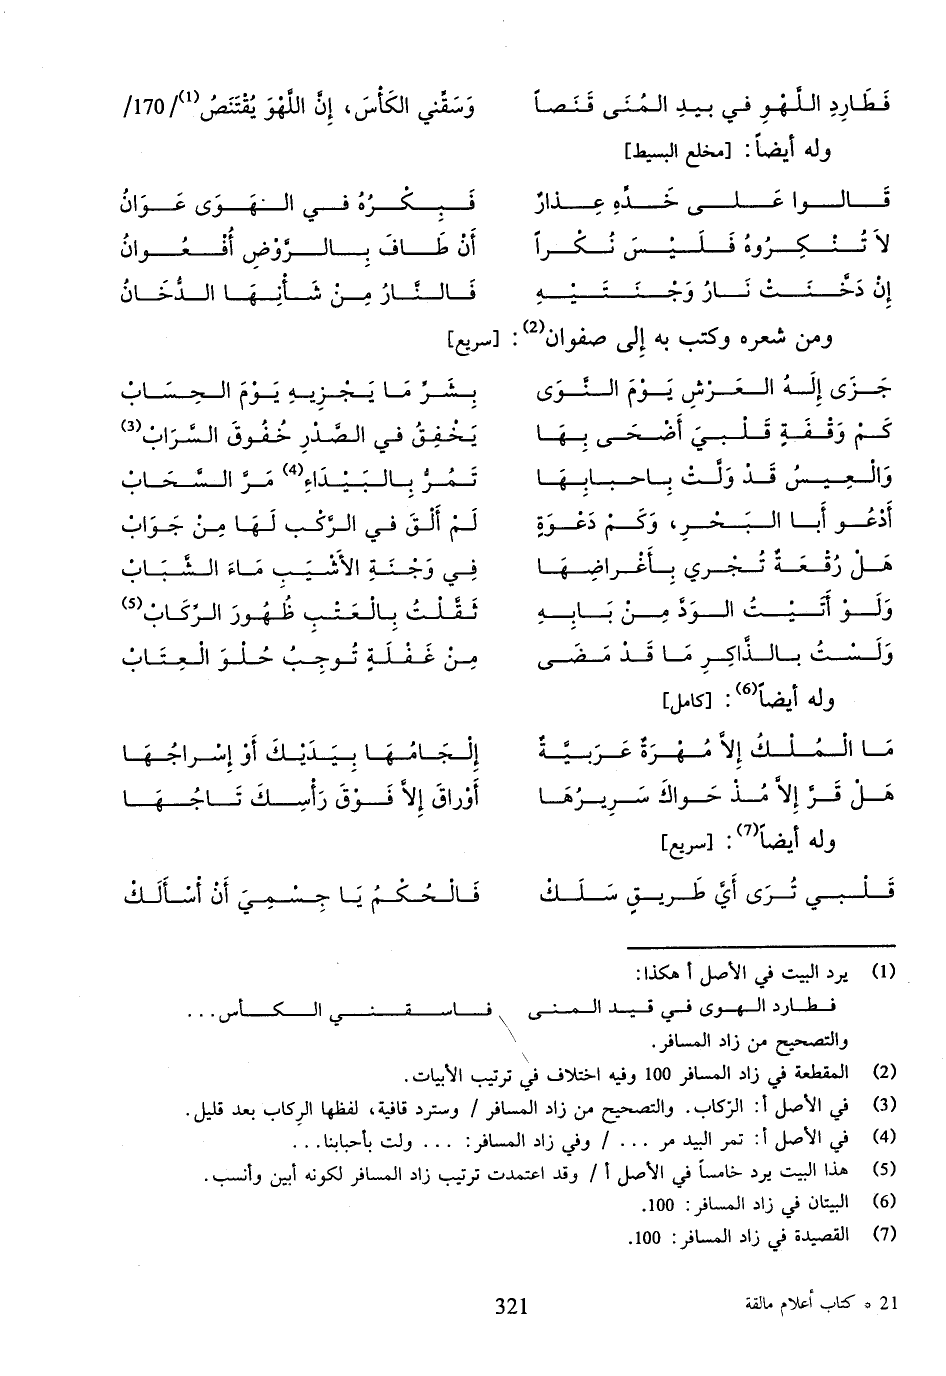 فَطَارِدِ اللَّهْوِ في بِيدِ المُنَى قَنَصاً وَسَقِّني الكَأْسَ، إِنَّ اللَّهْوَ يُقْتَنَصُ(1)/170/
وله أيضاً: [مخلع البسيط]
قَالوا عَلى خَدِّهِ عِذارٌ فَبِكْرُهُ في الهَوَى عَوَانُ
لاَ تُنْكِرُوهُ فَلَيْسَ نُكْراً أَنْ طَافَ بِالرَّوْضِ أُفْعُوانُ
إِنْ دَخَّنَتْ نَارُ وَجْنَتَيْهِ فَالنَّارُ مِنْ شَأْنِهَا الدُّخَانُ
ومن شعره وكتب به إلى صفوان(2): [سريع]
جَزَى إِلَهُ العَرْشِ يَوْمَ النَّوَى بِشَرِّ مَا يَجْزِيهِ يَوْمَ الحِسَابْ
كَمْ وَقْفَةٍ قَلْبِيَ أَضْحَى بِهَا يَخْفِقُ في الصَّدْرِ خُفُوقَ السَّرَابْ(3)
وَالْعِيسُ قَدْ وَلَّتْ بِأَحْبابِهَا تَمُرُّ بِالبَيْدَاءِ(4) مَرَّ السَّحَابْ
أَدْعُو أَبا البَحْرِ، وَكَمْ دَعْوَةٍ لَمْ أَلْقَ في الرَّكْبِ لَهَا مِنْ جَوَابْ
هَلْ رُقْعَةٌ تُجْرِي بِأَغْرَاضِهَا في وَجْنَةِ الأَشْيَبِ مَاءَ الشَّبَابْ
وَلَوْ أَتَيْتُ الوُدَّ مِنْ بَابِهِ ثَقَّلْتُ بِالْعَتْبِ ظُهُورَ الرِّكَابْ(5)
وَلَسْتُ بِالذَّاكِرِ مَا قَدْ مَضَى مِنْ غَفْلَةٍ تُوجِبُ حُلْوَ الْعِتَابْ
وله أيضاً(6): [كامل]
مَا الْمُلْكُ إِلاَّ مُهْرَةٌ عَرَبِيَّةٌ إِلْجَامُهَا بِيَدَيْكَ أَوْ إِسْرَاجُهَا
هَلْ قَرَّ إِلاَّ مُذْ حَوَاكَ سَرِيرُهَا أَوْراقَ إِلاَّ فَوْقَ رَأْسِكَ تَاجُهَا
وله أيضاً(7): [سريع]
قَلْبي تُرَى أَيَّ طَرِيقٍ سَلَكْ فَالْحُكْمُ يَا جِسْمِيَ أَنْ أَسْأَلَكْ
(1) يرد البيت في الأصل أ هكذا:
فطارد الهوى في قيد المنى فاسقني الكأس...
والتصحيح من زاد المسافر.
(2) المقطعة في زاد المسافر 100 وفيه اختلاف في ترتيب الأبيات.
(3) في الأصل أ: الرّكاب. والتصحيح من زاد المسافر / وسترد قافية، لفظها الرِكاب بعد قليل.
(4) في الأصل أ: تمر البيد مر ... / وفي زاد المسافر: ... ولت بأحبابنا...
(5) هذا البيت يرد خامساً في الأصل أ / وقد اعتمدت ترتيب زاد المسافر لكونه أبين وأنسب.
(6) البيتان في زاد المسافر: 100.
(7) القصيدة في زاد المسافر: 100.
21 * كتاب أعلام مالقة
321